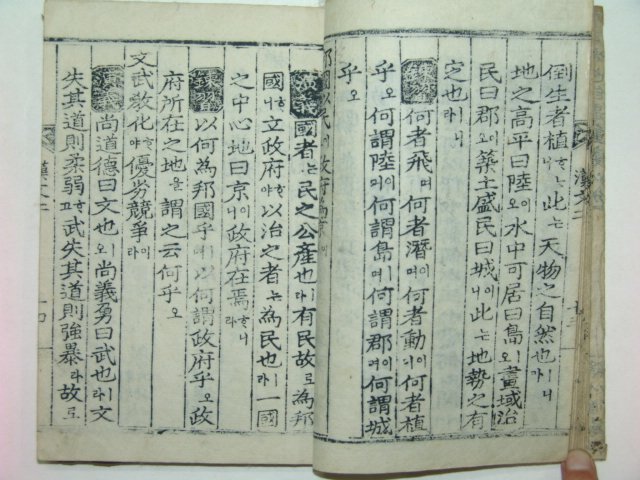 倒生者植ᄒᆞ니此는天物之自然也ㅣ니라
地之高平曰陸이오水中可居曰島ㅣ오畫域治
民曰郡이오築土盛民曰城이니此는地勢之有
定也ㅣ니라
何者飛며何者潛이며何者動이며何者植
이오何謂陸이며何謂島ㅣ며何謂郡이며何謂城
乎오
國者는民之公產也ㅣ라有民故로爲邦
國ᄒᆞ니立政府ᄒᆞ야以治之者는爲民也ㅣ라一國
之中心地曰京이니政府在焉ᄒᆞ니라
以何爲邦國乎ㅣ며以何謂政府乎오政
府所在之地를謂之云何乎오
文武敎化ㅣ라優劣競爭이라
尚道德曰文也ㅣ오尚義勇曰武也ㅣ라文
失其道則柔弱ᄒᆞ고武失其道則強暴ㅣ라故로
漢文二
十四